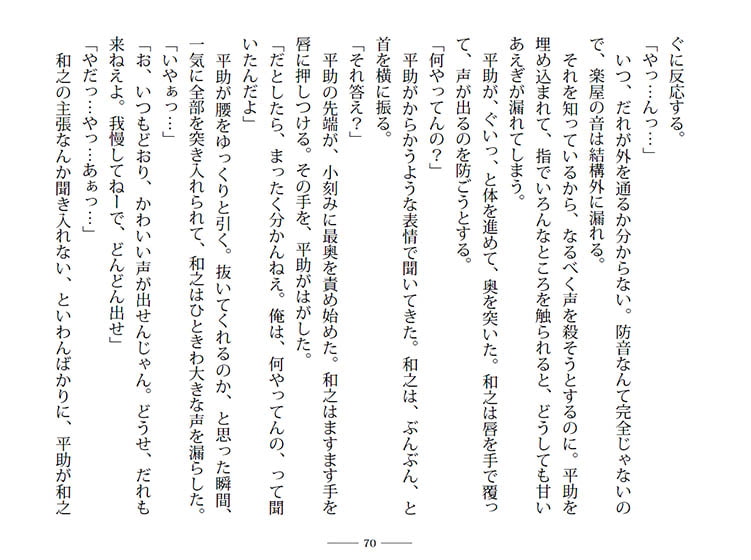 ぐに反応する。
「やっ…んっ…」
いつ、だれが外を通るか分からない。防音なんて完全じゃないの
で、楽屋の音は結構外に漏れる。
それを知っているから、なるべく声を殺そうとするのに。平助を
埋め込まれて、指でいろんなところを触られると、どうしても甘い
あえぎが漏れてしまう。
平助が、ぐいっ、と体を進めて、奥を突いた。和之は唇を手で覆っ
て、声が出るのを防ごうとする。
「何やってんの?」
平助がからかうような表情で聞いてきた。和之は、ぶんぶん、と
首を横に振る。
「それ答え?」
平助の先端が、小刻みに最奥を責め始めた。和之はますます手を
唇に押しつける。その手を、平助がはがした。
「だとしたら、まったく分かんねえ。俺は、何やってんの、って聞
いたんだよ」
平助が腰をゆっくりと引く。抜いてくれるのか、と思った瞬間、
一気に全部を突き入れられて、和之はひときわ大きな声を漏らした。
「いやぁっ…」
「お、いつもどおり、かわいい声が出せんじゃん。どうせ、だれも
来ねえよ。我慢してねーで、どんどん出せ」
「やだっ…やっ…あぁっ…」
和之の主張なんか聞き入れない、といわんばかりに、平助が和之
70